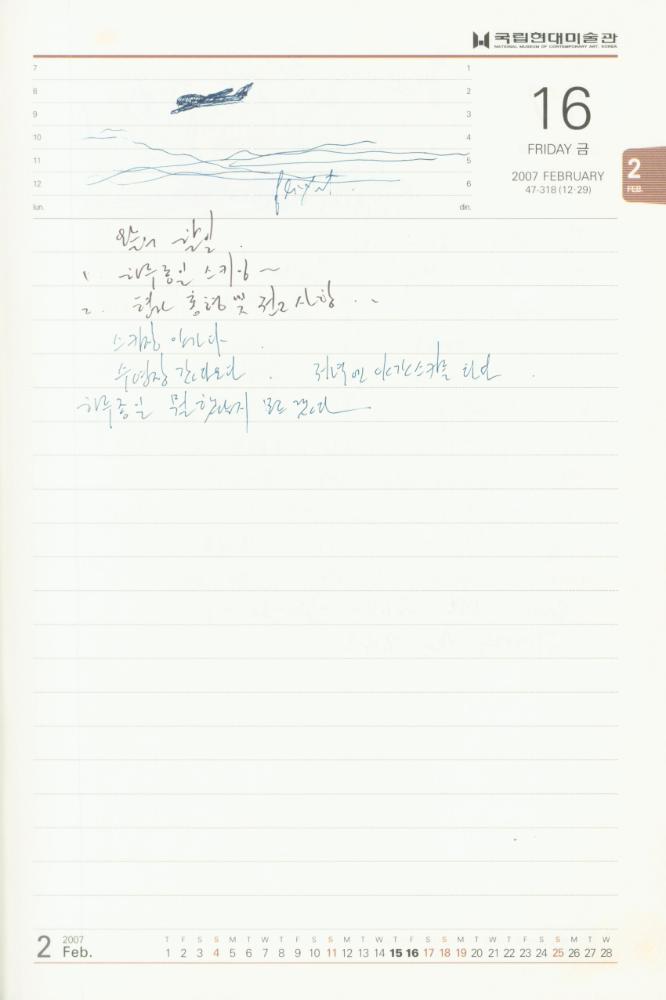 국립현대미술관
NATIONAL MUSEUM OF CONTEMPORARY ART, KOREA
7 1
8 2
9 3
10 4
11 5
12 6
lun. din.
16
FRIDAY 금
2007 FEBRUARY
47-318 (12·29)
2
FEB.
오늘의 할일
1. 하루종일 스키장~
2. 및 사항..
스키장
수영장 갔다오다. 저녁엔 야간스키를 타다.
하루종일 뭘 했는지 모르겠다
2 2007 Feb.
T F S S M T W T F S S M T W T F S S M T W T F S S M T W
1 2 3 4 5 6 7 8 9 10 11 12 13 14 15 16 17 18 19 20 21 22 23 24 25 26 27 28